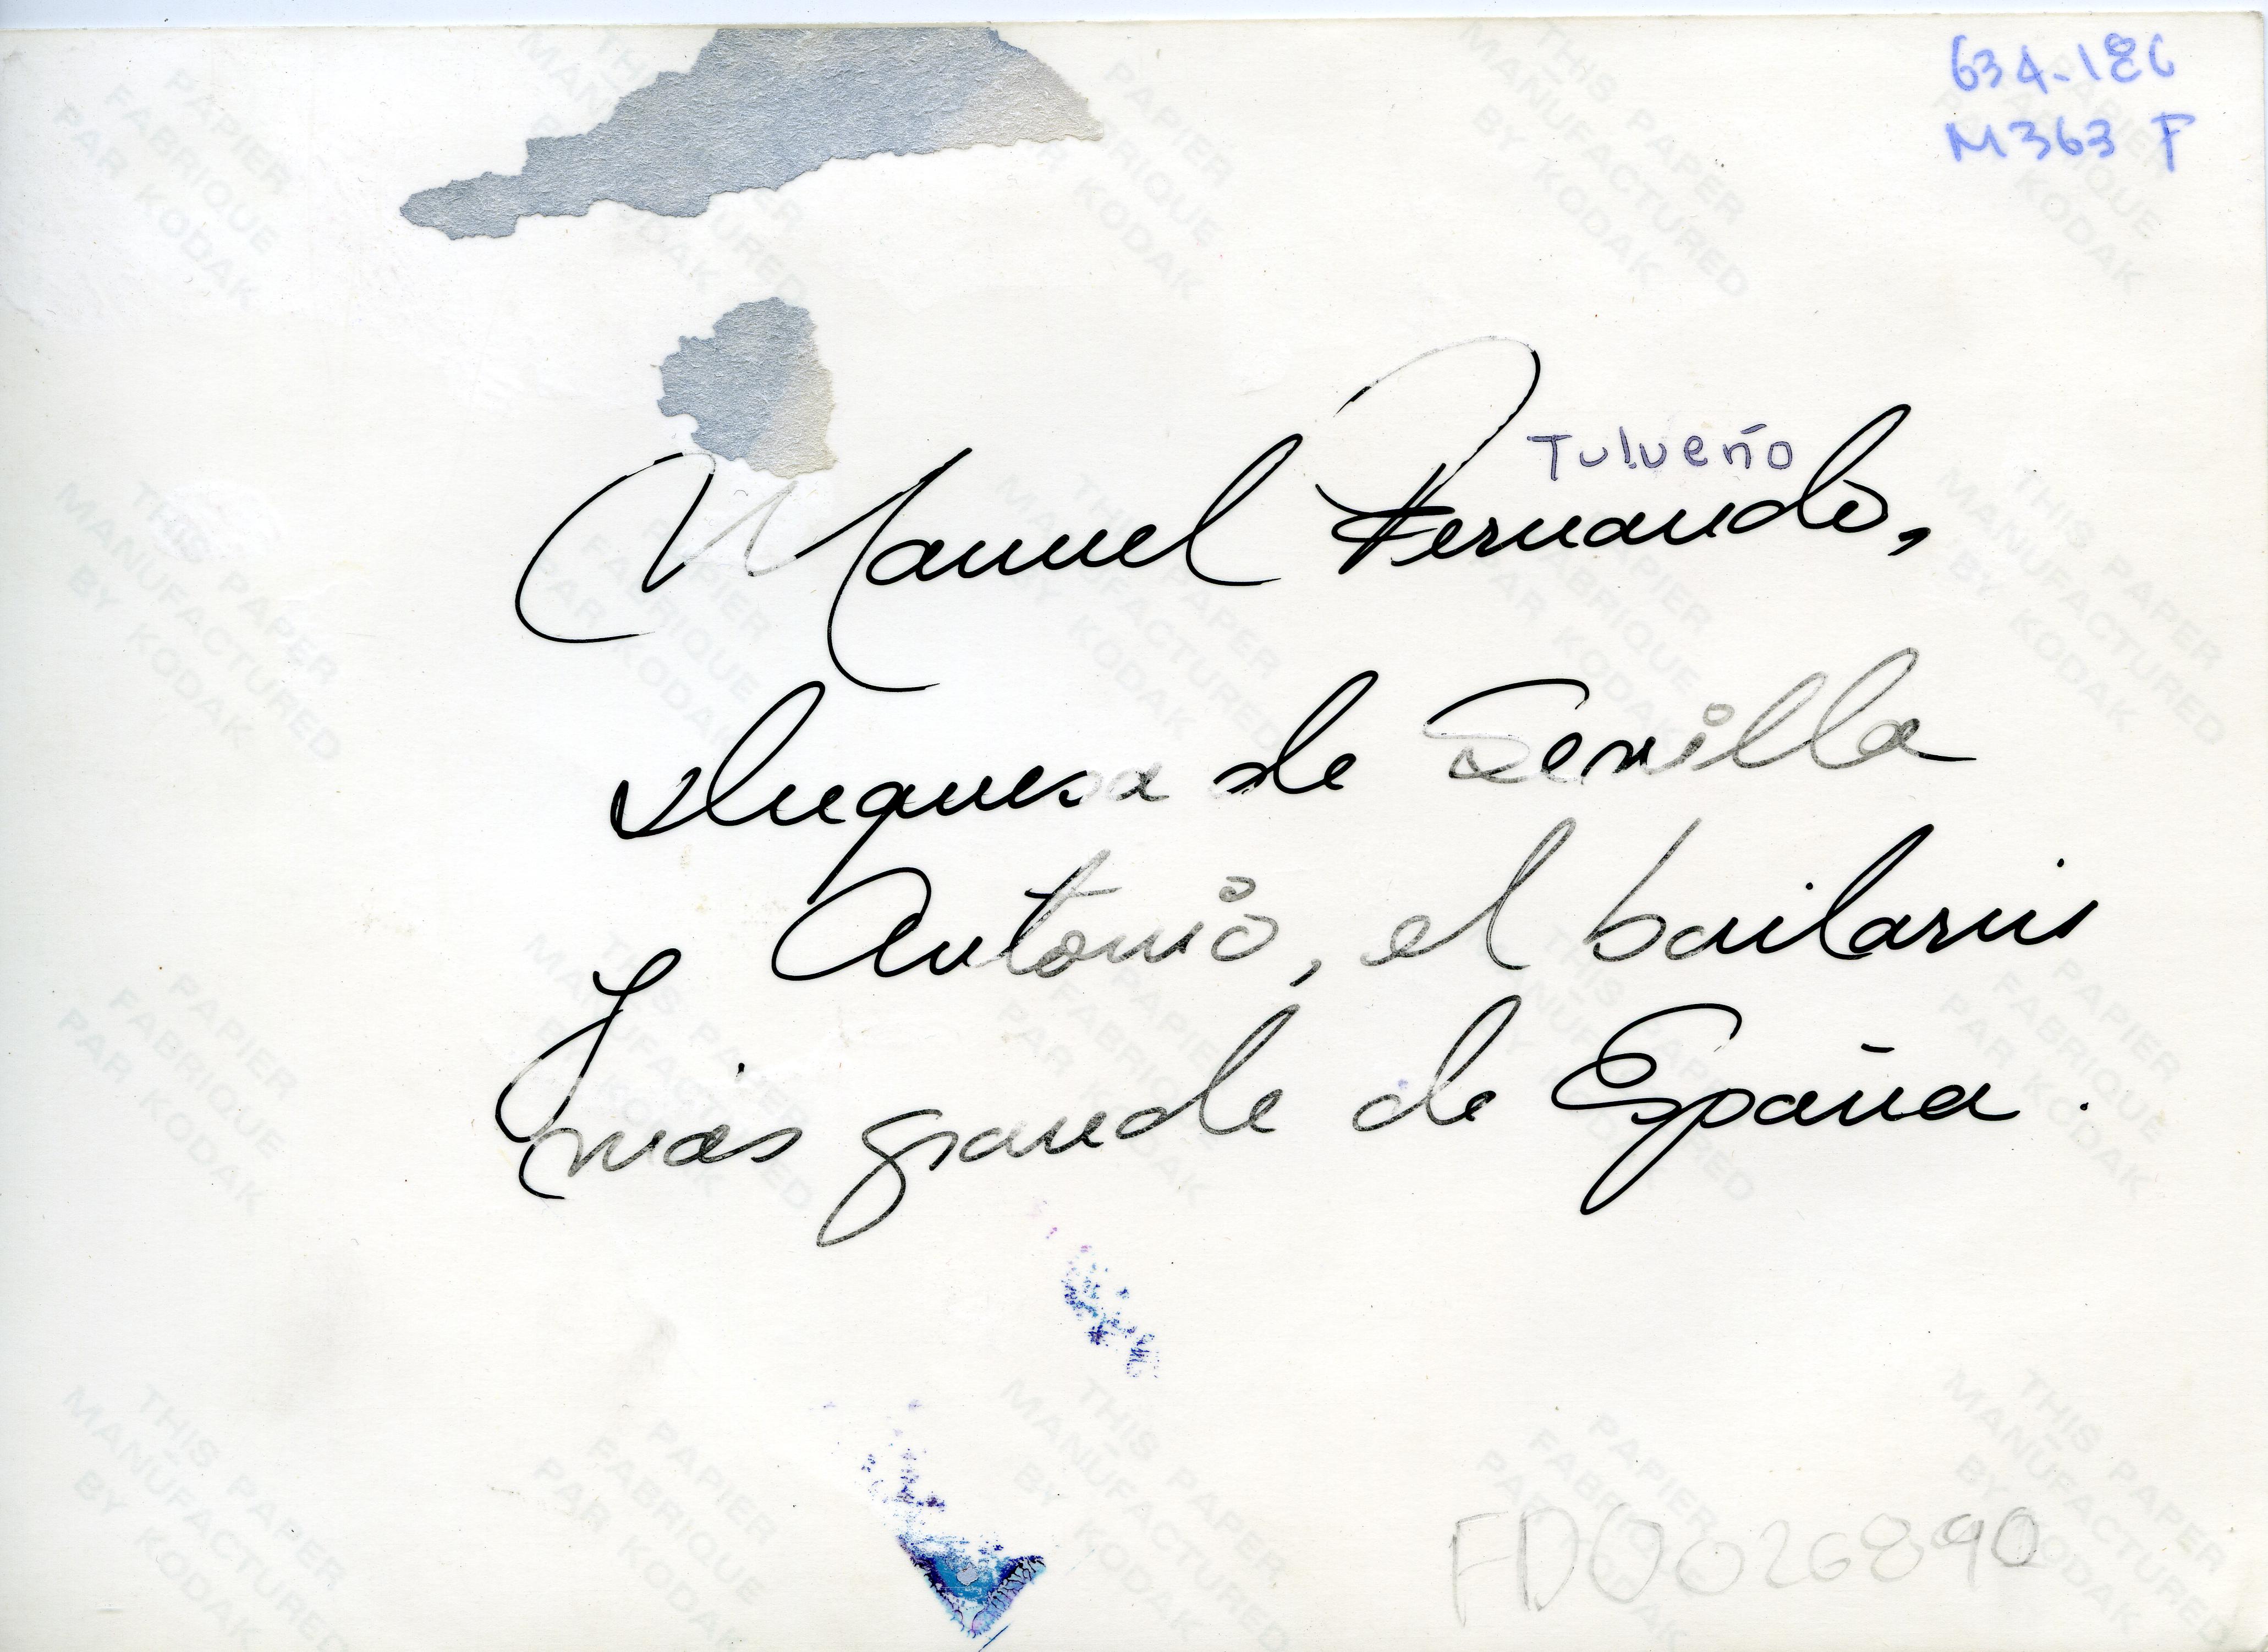 634-186
M363 F
Tulueño
Manuel Fernando,
duquesa de Sevilla
y Antonio, el bailarin
más grande de España.
FD0026890
THIS PAPER
MANUFACTURED
BY KODAK
PAPIER
FABRIQUE
PAR KODAK